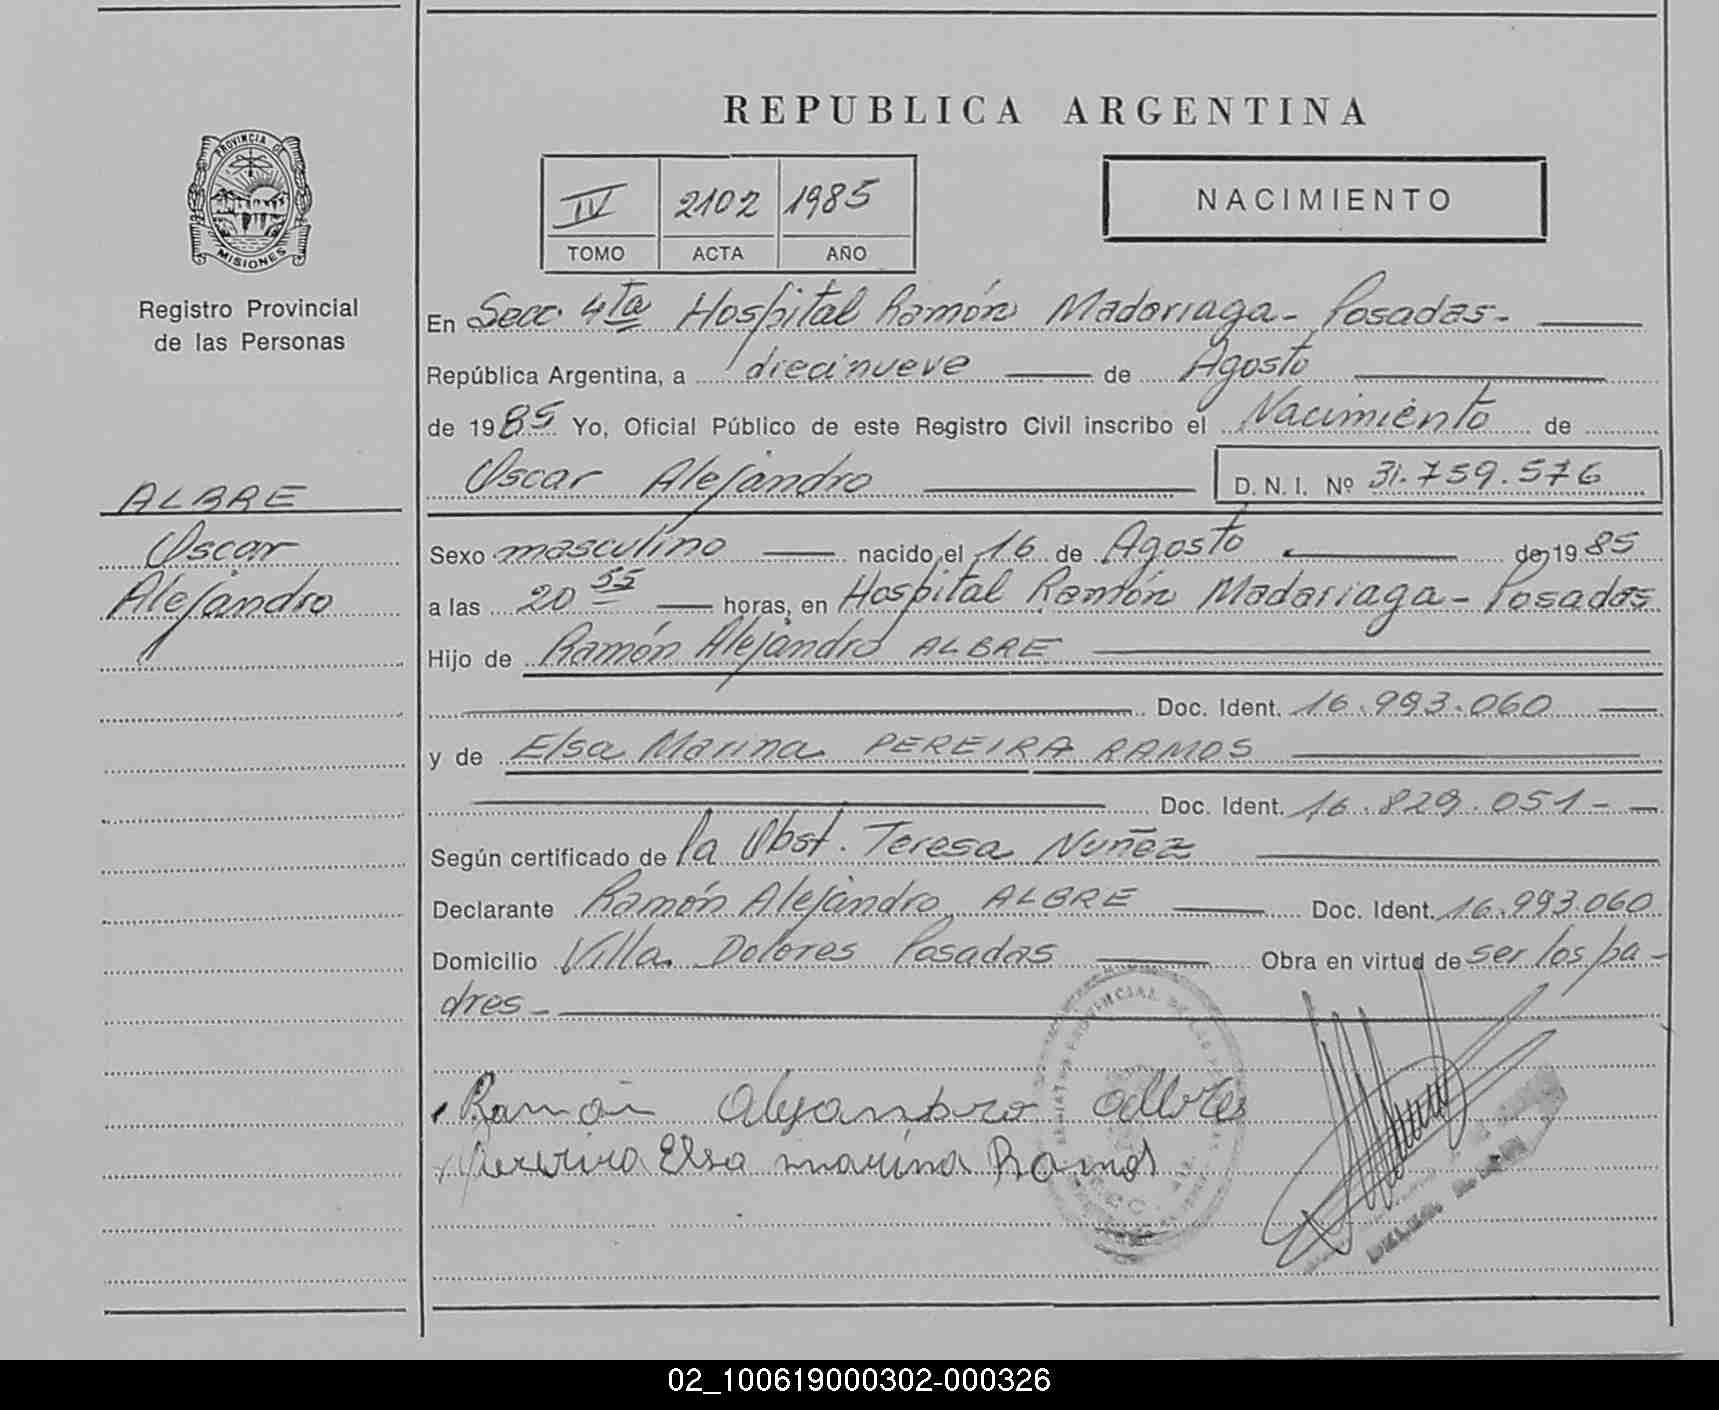 REPUBLICA ARGENTINA
PROVINCIA D
MISIONES
Registro Provincial
de las Personas
IV 2102 1985
TOMO ACTA AÑO
NACIMIENTO
En Secc. 4ta Hospital Ramón Madariaga - Posadas -
República Argentina, a diecinueve de Agosto
de 1985 Yo, Oficial Público de este Registro Civil inscribo el Nacimiento de
Oscar Alejandro D. N. I. Nº 31.759.576
ALBRE
Oscar
Alejandro
Sexo masculino nacido el 16 de Agosto de 1985
a las 20 55 horas, en Hospital Ramón Madariaga - Posadas
Hijo de Ramón Alejandro ALBRE
Doc. Ident. 16.993.060
y de Elsa Marina PEREIRA RAMOS
Doc. Ident. 16.829.051 -
Según certificado de la Obst. Teresa Nuñez
Declarante Ramón Alejandro ALBRE Doc. Ident. 16.993.060
Domicilio Villa Dolores Posadas Obra en virtud de ser los pa-
dres -
Ramón Alejandro
Pereira Elsa marina Ramos
02_100619000302-000326